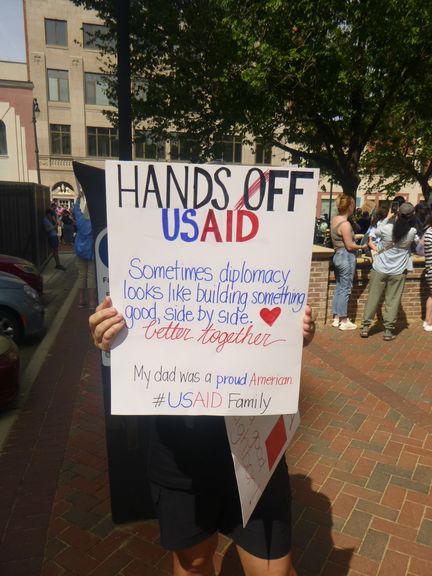 HANDS OFF
USAID
Sometimes diplomacy
looks like building something
good, side by side.
better together
My dad was a proud American
#USAID Family